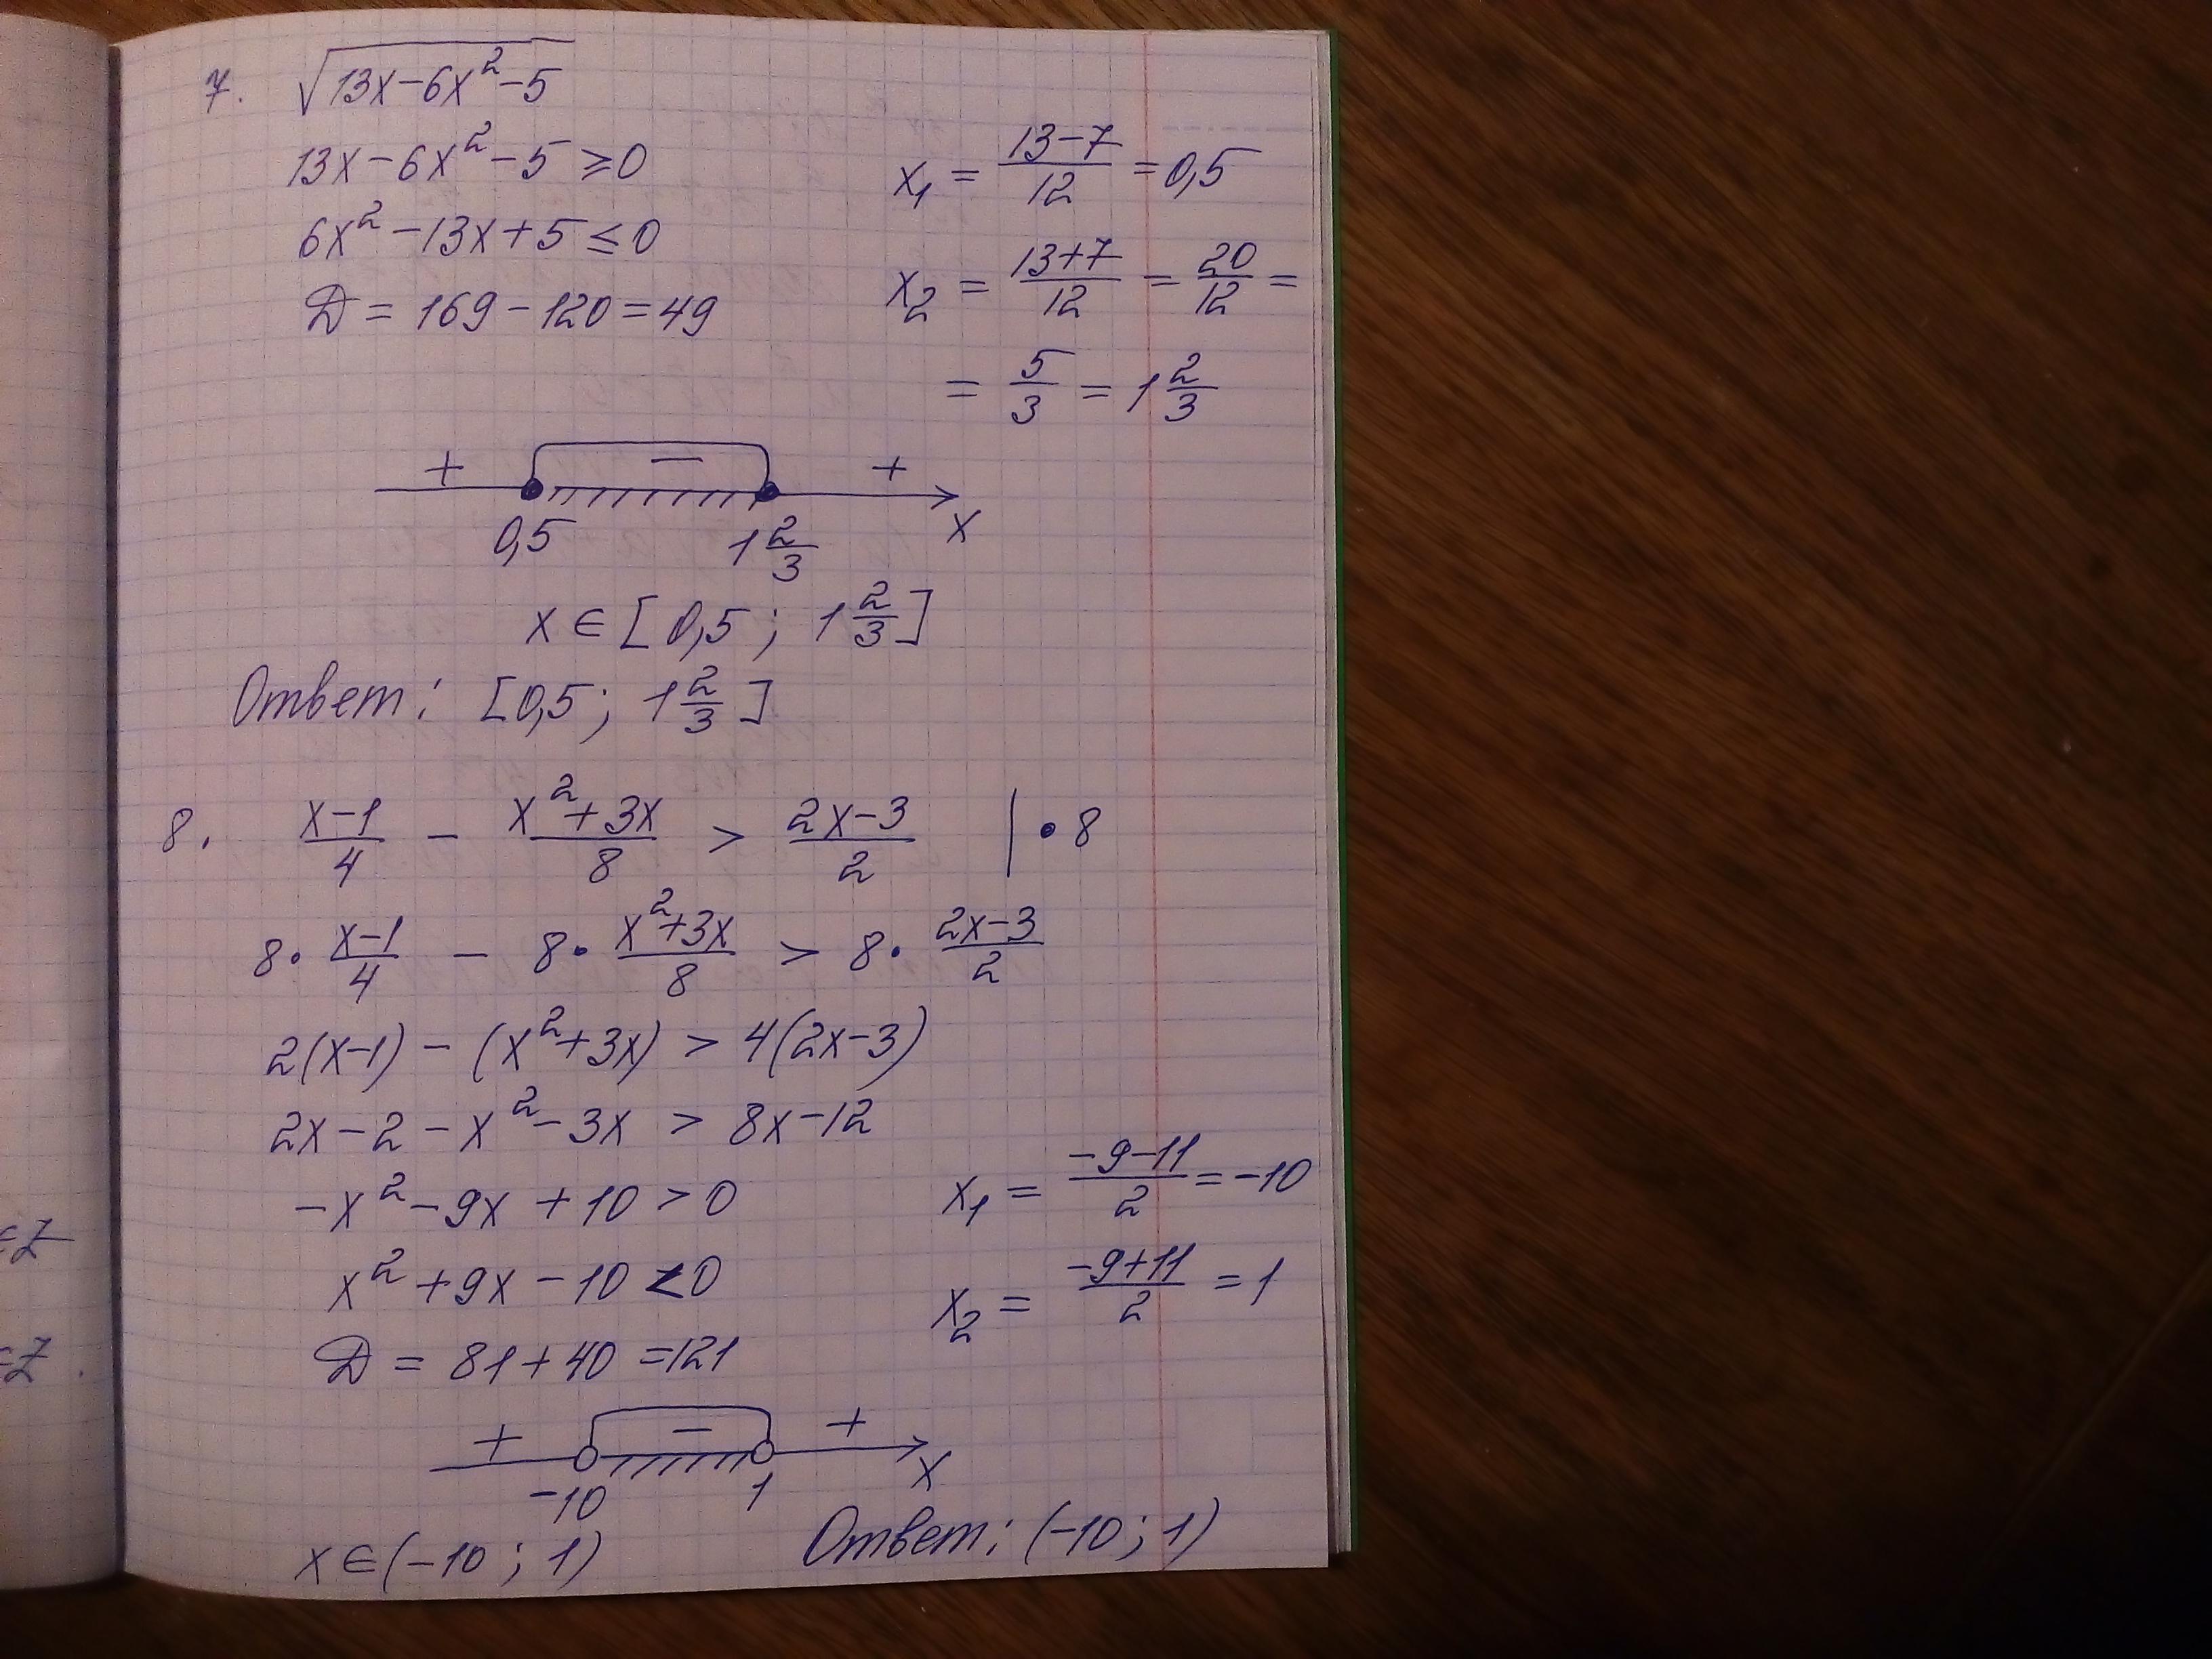 7. √(13x-6x²-5)
13x-6x²-5 ≥ 0
6x²-13x+5 ≤ 0
Д = 169-120 = 49
x₁ = (13-7)/12 = 0,5
x₂ = (13+7)/12 = 20/12 =
= 5/3 = 1 2/3
+ − +
0,5 1 2/3 x
x ∈ [0,5 ; 1 2/3]
Ответ: [0,5 ; 1 2/3]
8. (x-1)/4 - (x²+3x)/8 > (2x-3)/2 | • 8
8• (x-1)/4 - 8• (x²+3x)/8 > 8• (2x-3)/2
2(x-1) - (x²+3x) > 4(2x-3)
2x-2-x²-3x > 8x-12
-x²-9x+10 > 0
x²+9x-10 < 0
Д = 81+40 = 121
x₁ = (-9-11)/2 = -10
x₂ = (-9+11)/2 = 1
+ − +
-10 1 x
x ∈ (-10 ; 1)
Ответ: (-10 ; 1)